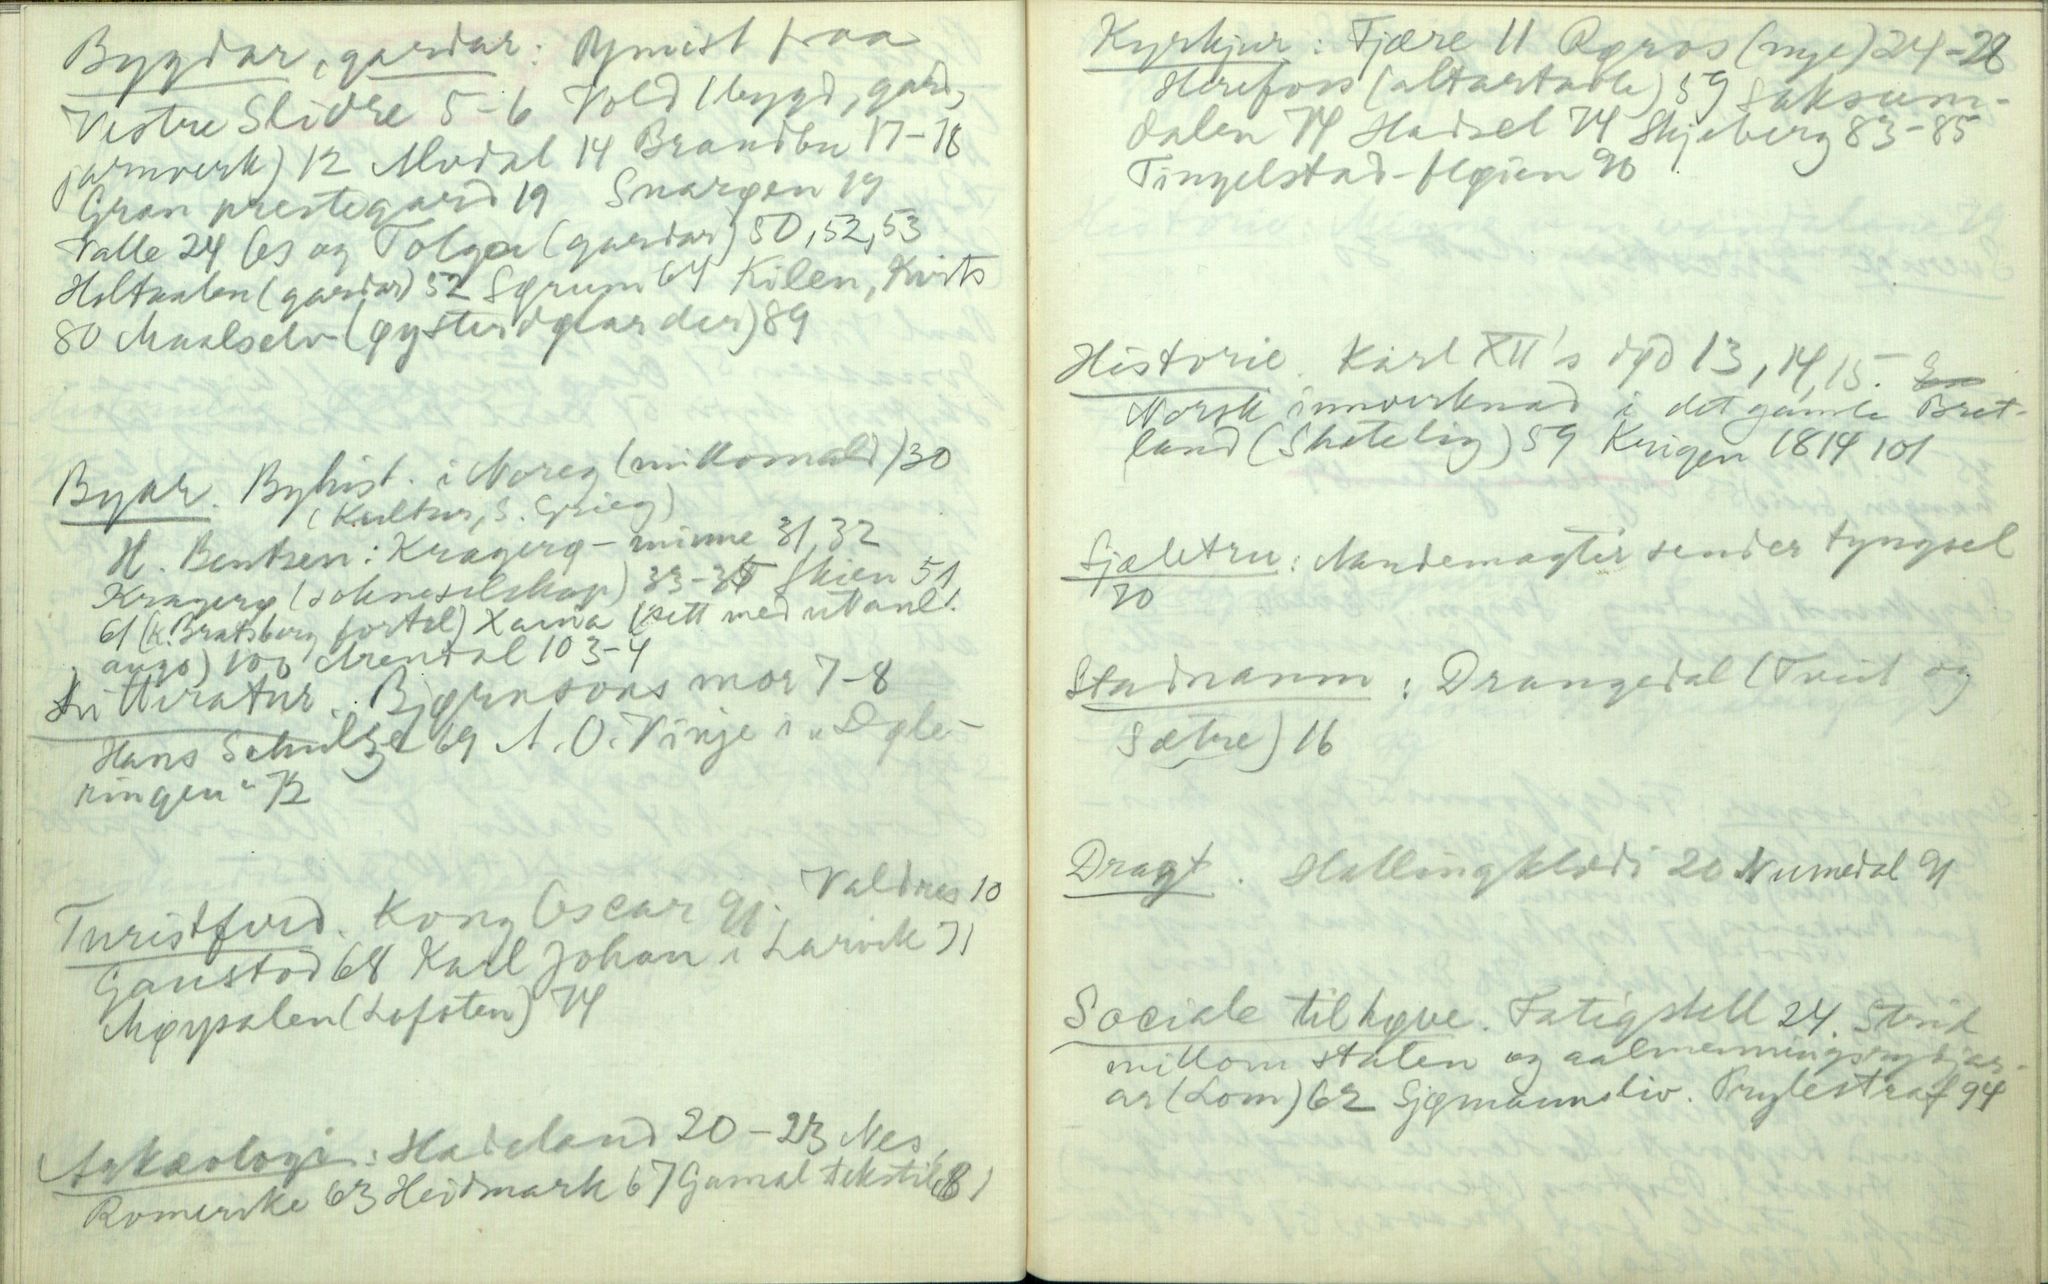 Bygdar, gardar: Ymist fraa
Vestre Slidre 5-6 Vold (bygd, gard,
jarnverk) 12 Alvdal 14 Brandbu 17-18
Gran prestegard 19 Snarøen 19
Valle 24 Os og Tolga (gardar) 50, 52, 53
Holtaalen (gardar) 52 Sørum 64 Kilen, Kvits
80 Maalselv (øysterdølar der) 89
Byar. Byhist. i Noreg (millomald) 30
(Kultur, S. Grieg)
H. Bentsen: Kragerø-minne 31, 32
Kragerø (sokneselskap) 33-35 Skien 51,
61 (K. Bratsberg fortel) (sett med utanl.
augo) 100 Arendal 103-4
Litteratur. Bjørnsons mor 7-8
Hans Schulze 69 A. O. Vinje i "Døle-
ringen" 72
Turistferd. Kong Oscar 9. Valdres 10
Gaustad 68 Karl Johan i Larvik 71
Møysalen (Lofoten) 74
Arkæologi: Hadeland 20-23 Nes,
Romerike 63 Heidmark 67 Gamal tekstil 81
Kyrkjur: Fjære 11 Røros (nye) 24-28
Herefoss (altartavle) 59 Saksum-
dalen 74 Hadsel 74 Skjeberg 83-85
Tingelstad-fløien 90
Historie. Karl XII's død 13, 14, 15.
Norsk innverknad i det gamle Bret-
land (Shetelig) 59 Krigen 1814 101
Sjæletru: Mandemagtir sender tyngsel
70
Stadnamn: Drangedal (Tveit og
Sætre) 16
Dragt. Hallingklædi 20 Numedal 91
Sociale tilhøve. Fatigstell 24. Strid
millom staten og aalmenningsrydjar-
ar (Lom) 62 Sjømannsliv. Prylestraf 94